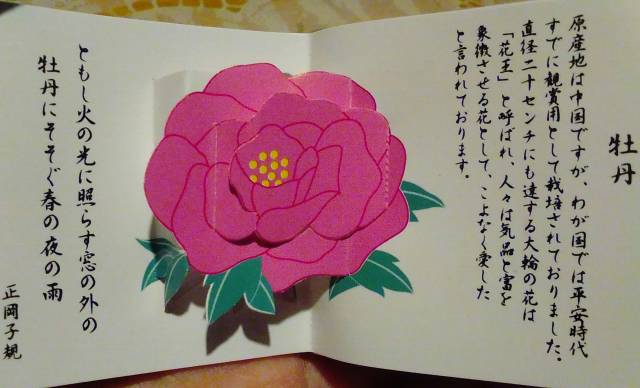 牡丹
原産地は中国ですが、わが国では平安時代
すでに観賞用として栽培されておりました。
直径二十センチにも達する大輪の花は
「花王」と呼ばれ、人々は気品と富を
象徴させる花として、こよなく愛した
と言われております。
ともし火の光に照らす窓の外の
牡丹にそそぐ春の夜の雨
正岡子規